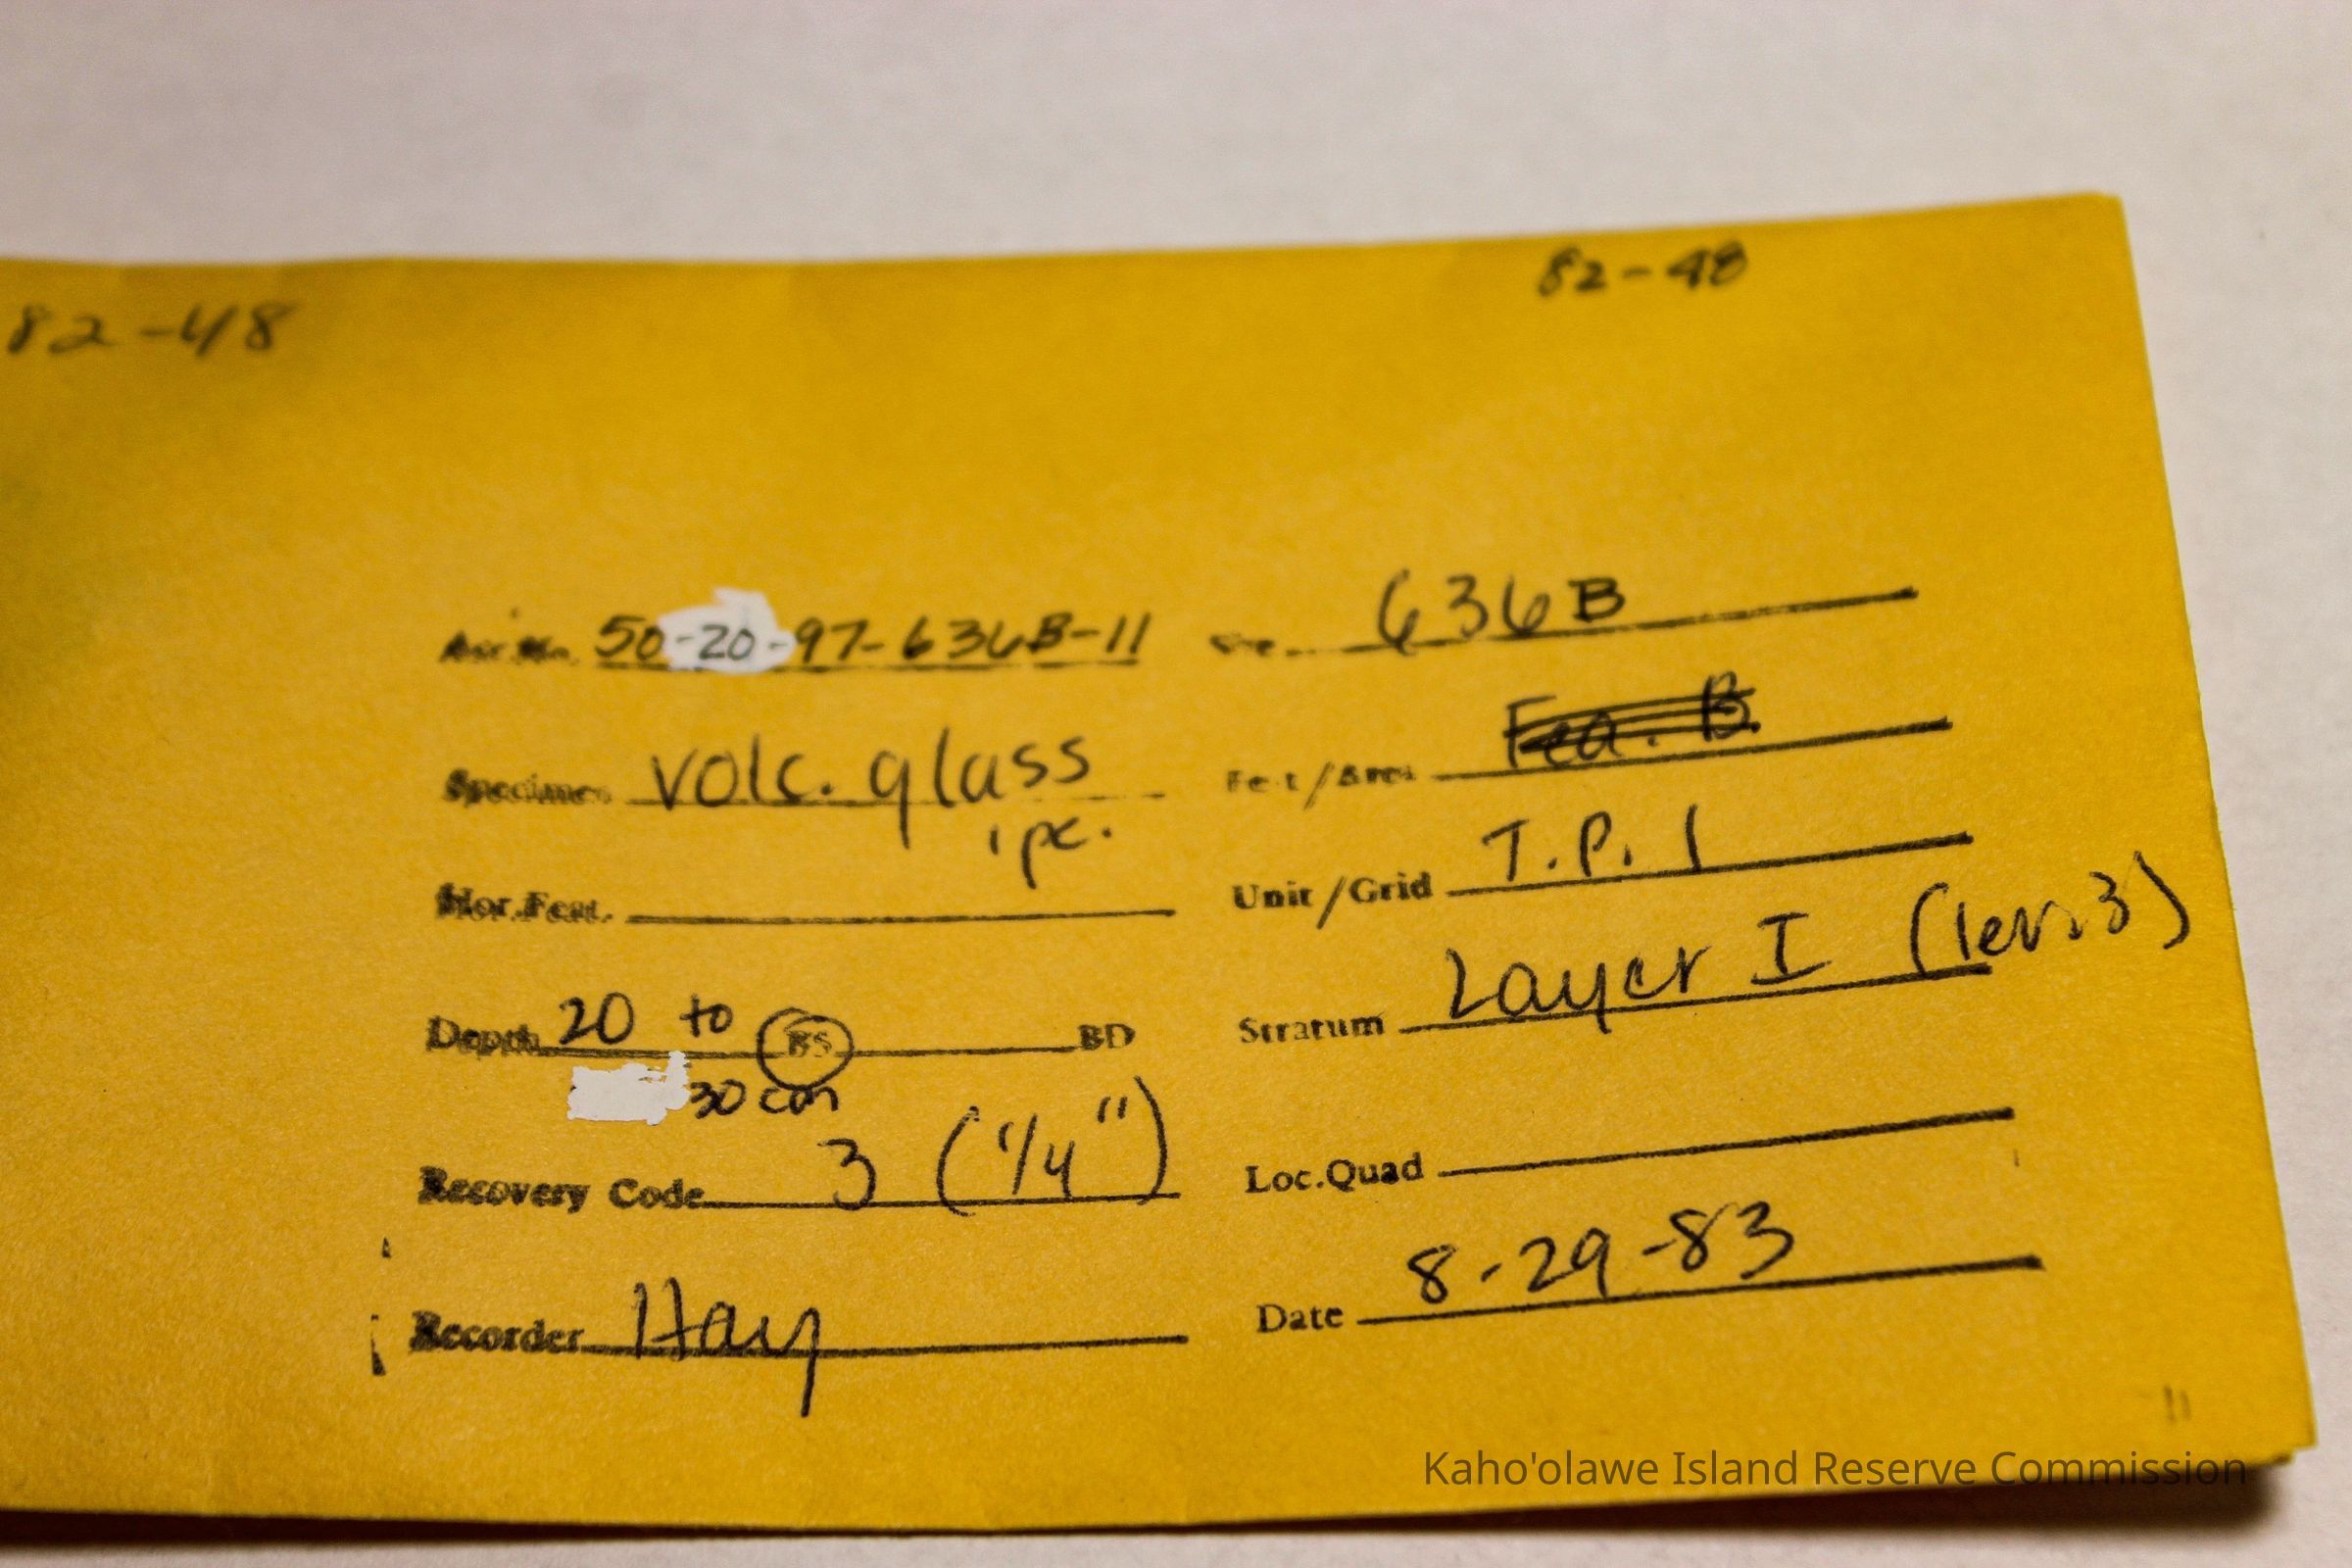 82-48
82-48
50-20-97-636B-11
636B
Specimen volc. glass
Feat/Area Fea. B.
1 pc.
Hor.Feat.
Unit/Grid T.P. 1
Stratum Layer I (lev. 3)
Depth 20 to BS BD
30 cm
Recovery Code 3 (1/4")
Loc.Quad
Recorder Hay
Date 8-29-83
11
Kaho'olawe Island Reserve Commission